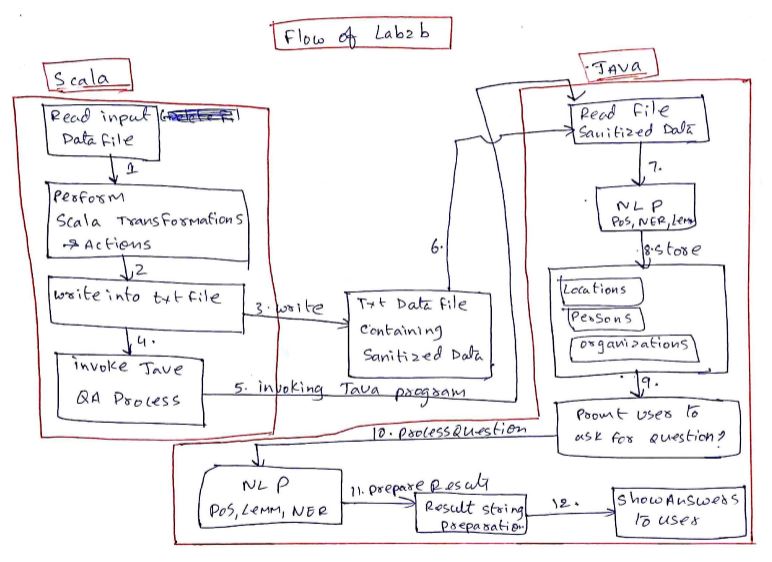 Flow of Lab2b
Scala
Read input
Data file
1
Perform
Scala Transformations
→ Actions
2
write into txt file
3. write
4.
invoke Jave
QA Process
5. invoking Java program
Txt Data file
containing
Sanitized Data
6.
JAVA
Read File
Sanitized Data
7.
NLP
POS, NER, Lemm
8. store
Locations
Persons
organizations
9.
Promt user to
ask for question?
10. process Question
NLP
POS, Lemm, NER
11. prepare Result
Result string
preparation
12.
Show Answers
To user